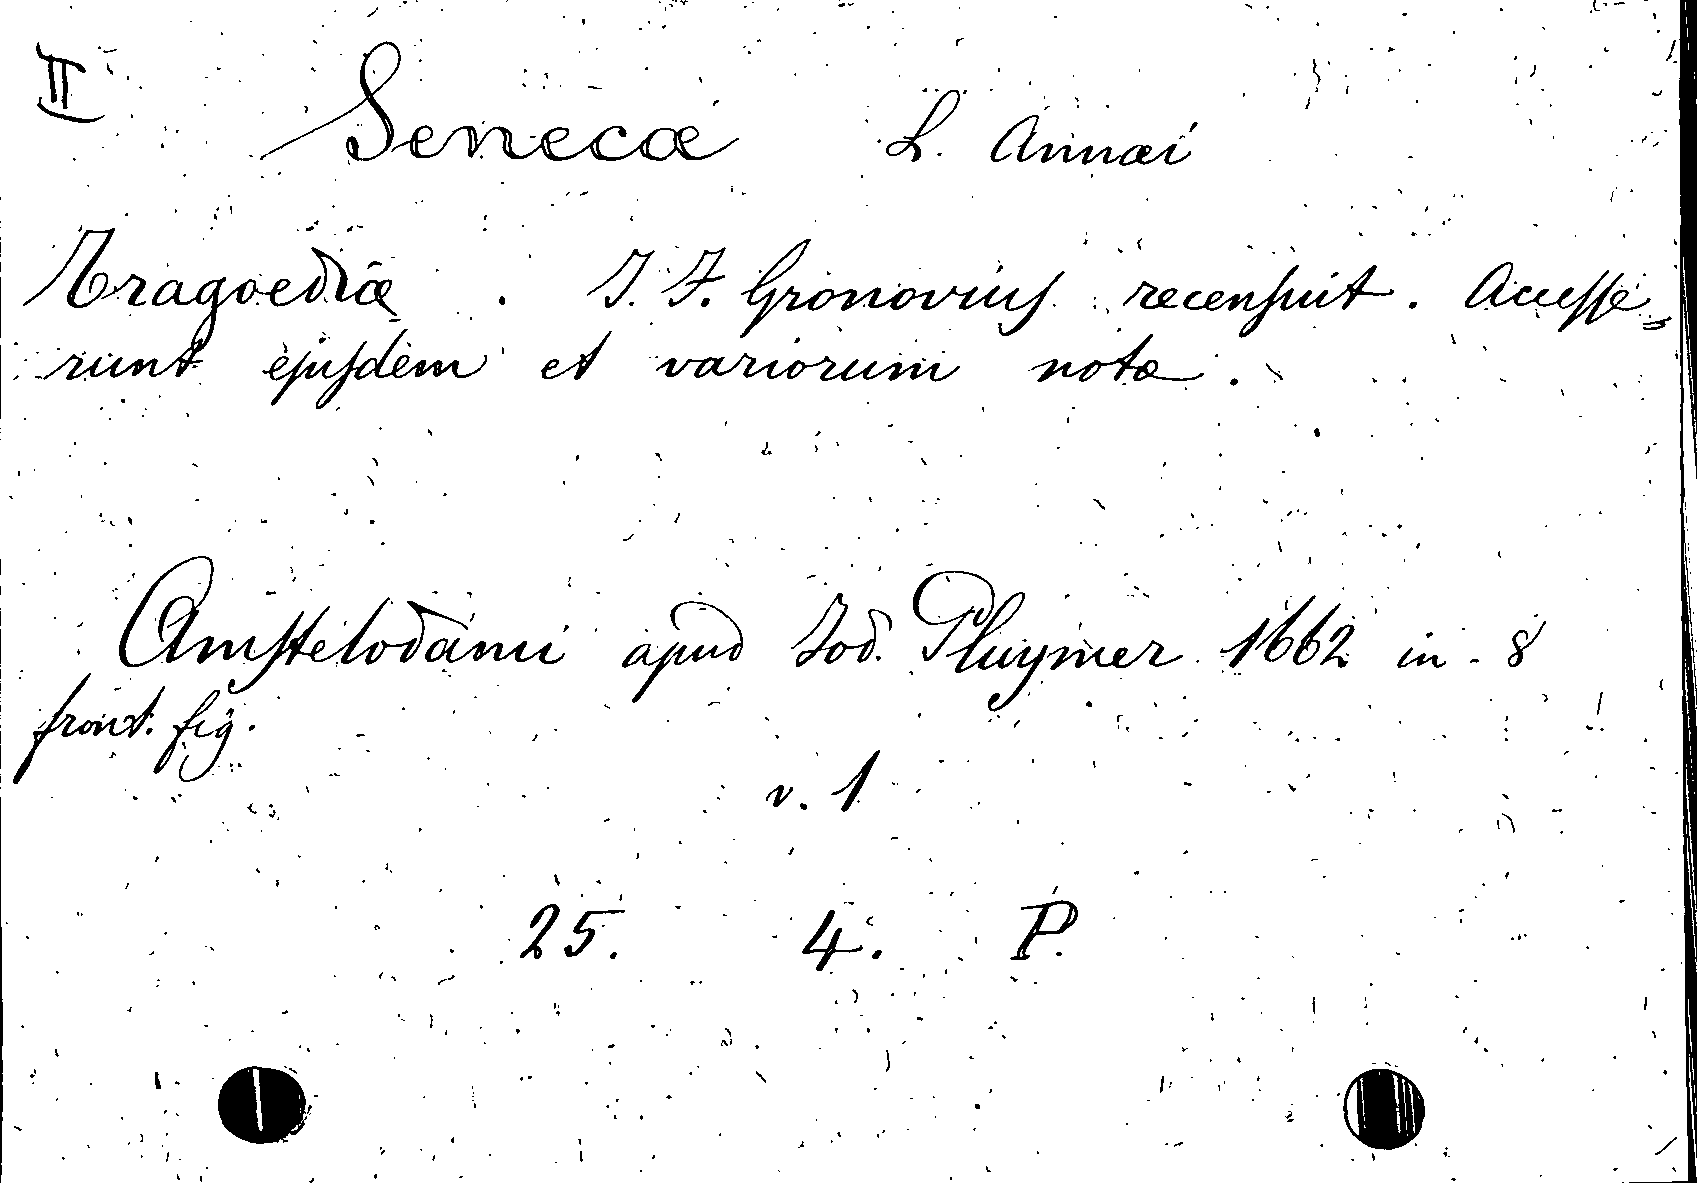 II
Senecæ L. Annæi
Tragoediæ . J. F. Gronovius recensuit. Accesse„
runt ejusdem et variorum notæ.
Amstelodami apud Jod. Pluymer 1662 in-8
front. fig.
v. 1
25. 4. P.